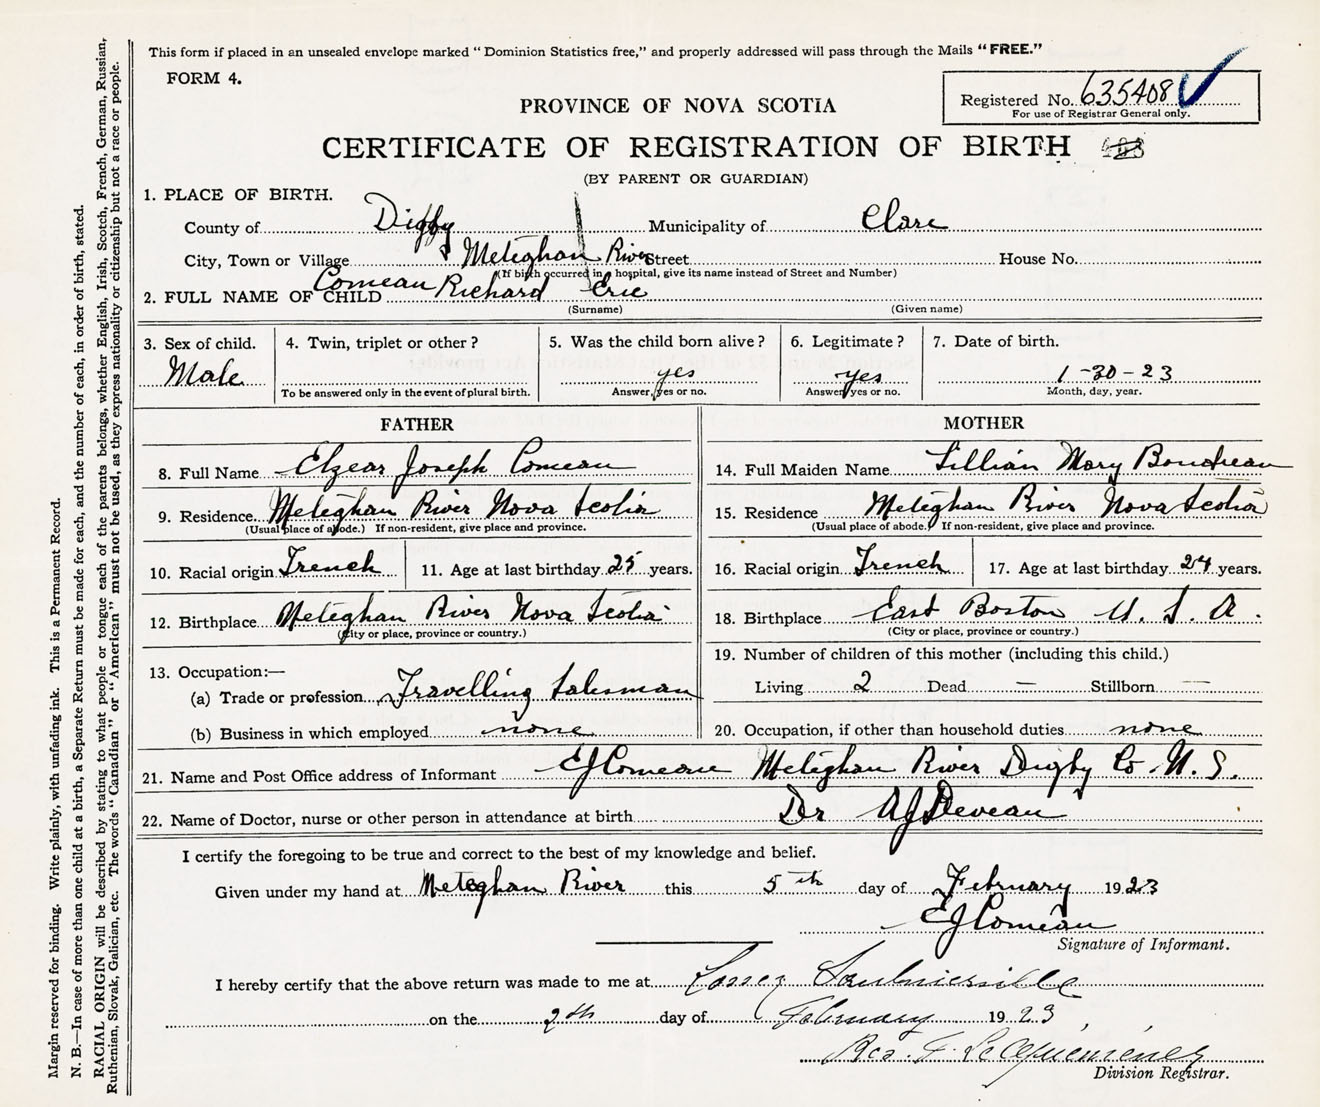 This form if placed in an unsealed envelope marked "Dominion Statistics free," and properly addressed will pass through the Mails "FREE."
FORM 4.
Registered No. 635408
For use of Registrar General only.
PROVINCE OF NOVA SCOTIA
CERTIFICATE OF REGISTRATION OF BIRTH
(BY PARENT OR GUARDIAN)
1. PLACE OF BIRTH.
County of Digby Municipality of Clare
City, Town or Village Meteghan River Street House No.
(If birth occurred in a hospital, give its name instead of Street and Number)
2. FULL NAME OF CHILD Comeau Richard Eric
(Surname) (Given name)
3. Sex of child. 4. Twin, triplet or other? 5. Was the child born alive? 6. Legitimate? 7. Date of birth.
Male yes yes 1-30-23
To be answered only in the event of plural birth. Answer yes or no. Answer yes or no. Month, day, year.
FATHER MOTHER
8. Full Name Elzear Joseph Comeau 14. Full Maiden Name Lillian Mary Boudreau
9. Residence Meteghan River Nova Scotia 15. Residence Meteghan River Nova Scotia
(Usual place of abode.) If non-resident, give place and province. (Usual place of abode.) If non-resident, give place and province.
10. Racial origin French 11. Age at last birthday 25 years. 16. Racial origin French 17. Age at last birthday 24 years.
12. Birthplace Meteghan River Nova Scotia 18. Birthplace East Boston U. S. A.
(City or place, province or country.) (City or place, province or country.)
13. Occupation:— 19. Number of children of this mother (including this child.)
(a) Trade or profession Travelling Salesman Living 2 Dead — Stillborn —
(b) Business in which employed none 20. Occupation, if other than household duties none
21. Name and Post Office address of Informant EJ Comeau Meteghan River Digby Co. N. S.
22. Name of Doctor, nurse or other person in attendance at birth Dr AJ Deveau
I certify the foregoing to be true and correct to the best of my knowledge and belief.
Given under my hand at Meteghan River this 5th day of February 1923
EJ Comeau
Signature of Informant.
I hereby certify that the above return was made to me at Saulnierville
on the day of February 1923
Division Registrar.
Margin reserved for binding. Write plainly, with unfading ink. This is a Permanent Record.
N. B.—In case of more than one child at a birth, a Separate Return must be made for each, and the number of each, in order of birth, stated.
RACIAL ORIGIN will be described by stating to what people or tongue each of the parents belongs, whether English, Irish, Scotch, French, German, Russian,
Ruthenian, Slovak, Galician, etc. The words "Canadian" or "American" must not be used, as they express nationality or citizenship but not a race or people.